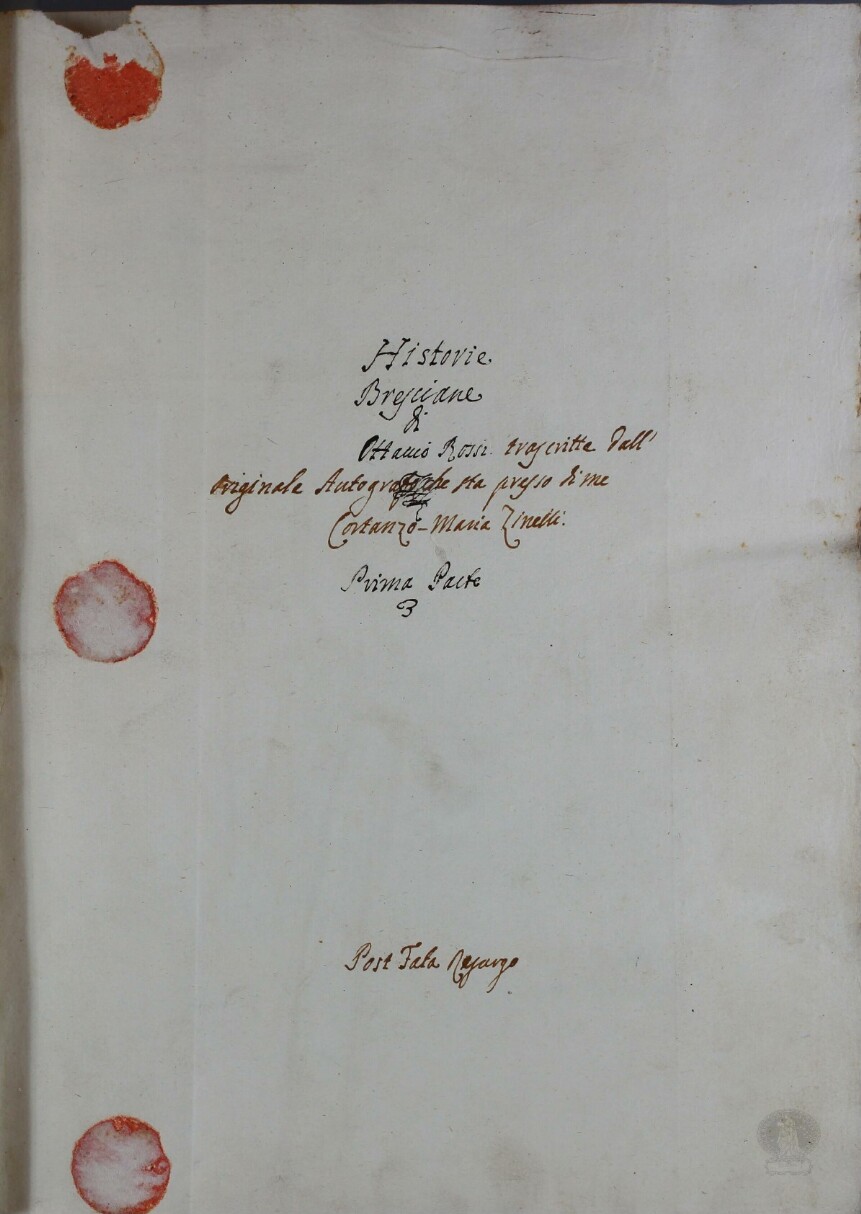 Historie
Bresciane
di
Ottavio Rossi trascritte dall'
originale Autografo che sta presso di me
Costanzo-Maria Zinelli.
Prima Parte
Post Fata Resurgo